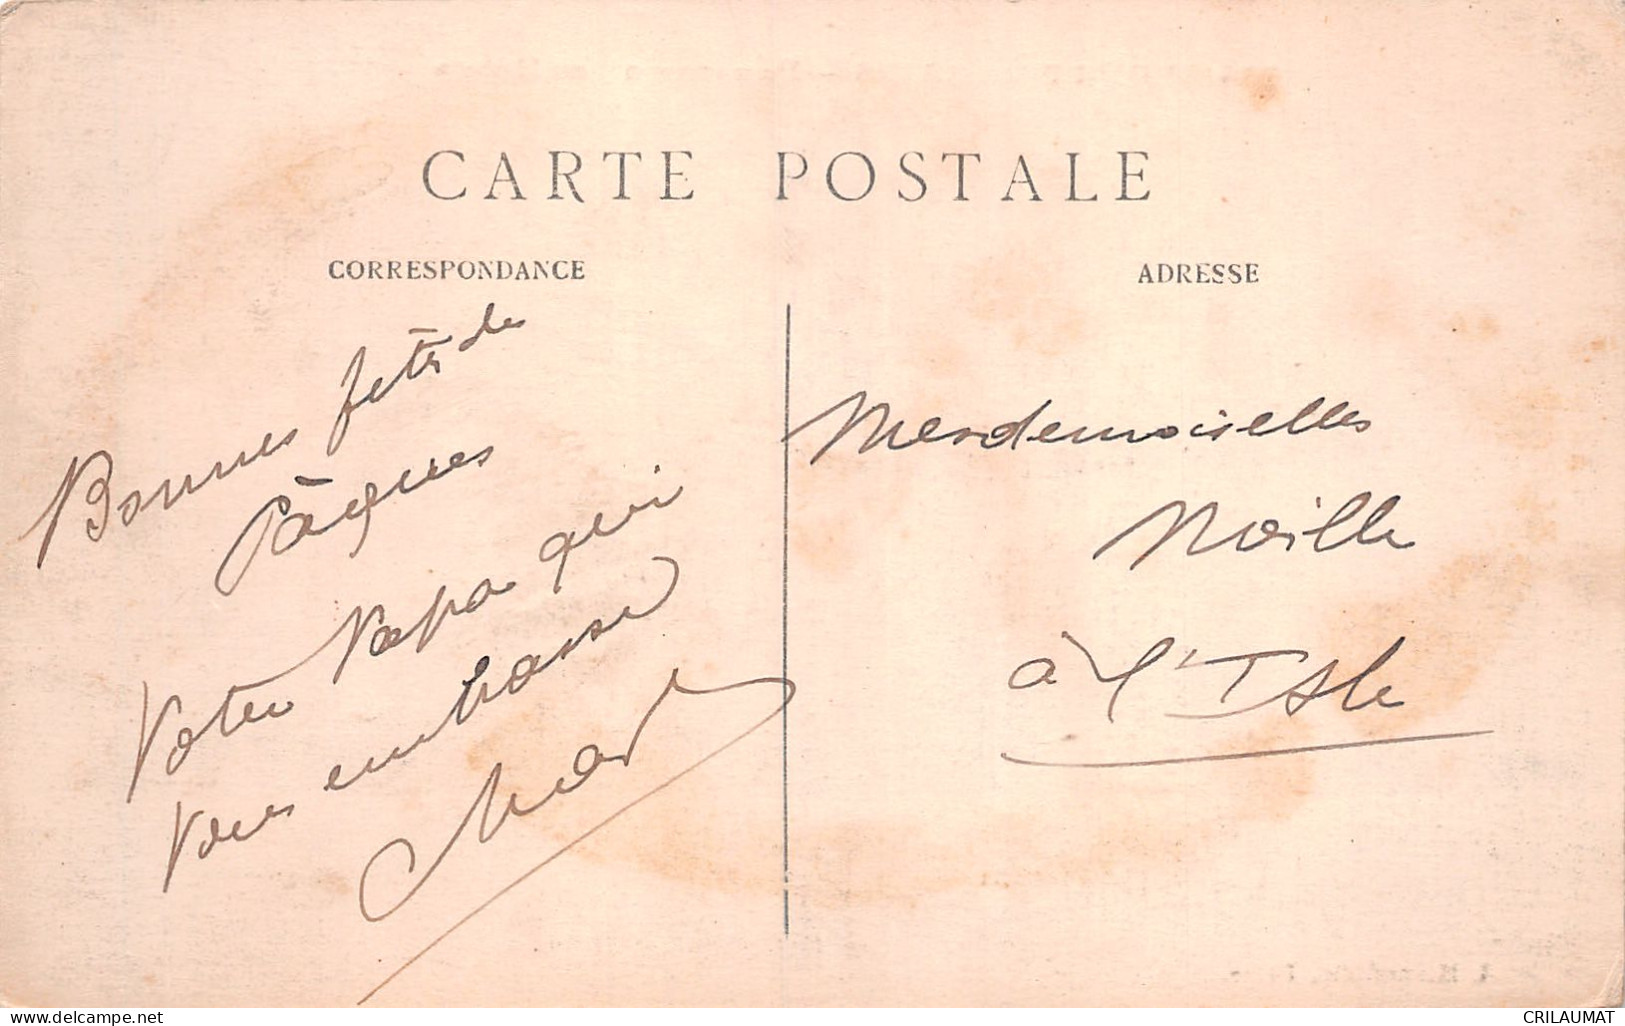 CARTE POSTALE
CORRESPONDANCE
ADRESSE
Bonnes fêtes de
Pâques
Votre Papa qui
vous embrasse
Mesdemoiselles
Noille
à l'Isle
delcampe.net
CRILAUMAT